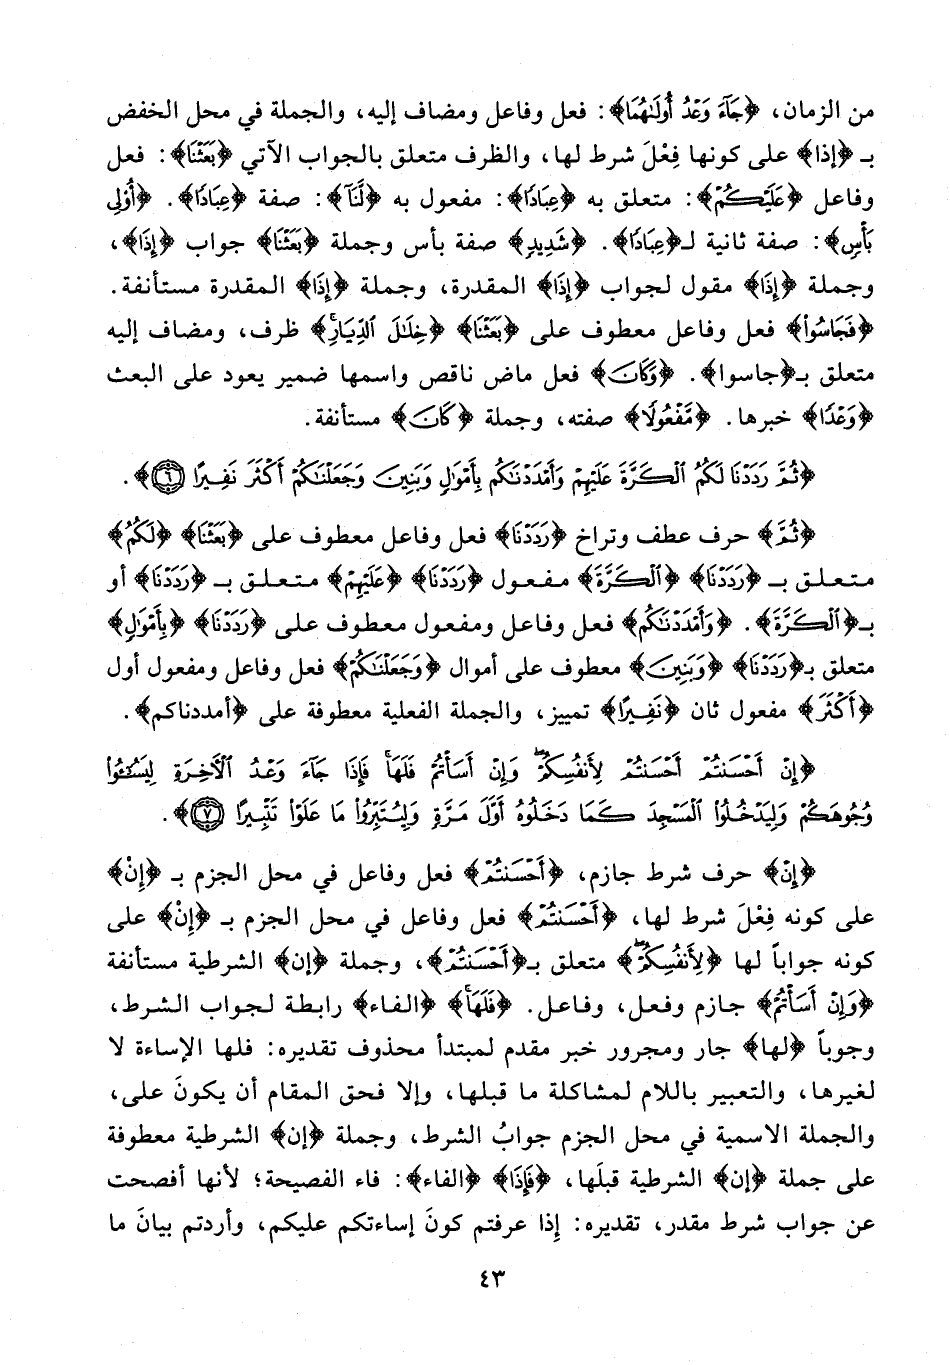 من الزمان، ﴿جَآءَ وَعْدُ أُولَىٰهُمَا﴾: فعل وفاعل ومضاف إليه، والجملة في محل الخفض
بـ ﴿إذا﴾ على كونها فِعْلَ شرط لها، والظرف متعلق بالجواب الآتي ﴿بَعَثْنَا﴾: فعل
وفاعل ﴿عَلَيْكُمْ﴾: متعلق به ﴿عِبَادًا﴾: مفعول به ﴿لَّنَآ﴾: صفة ﴿عِبَادًا﴾. ﴿أُوْلِى
بَأْسٍ﴾: صفة ثانية لـ﴿عِبَادًا﴾. ﴿شَدِيدٍ﴾ صفة بأس وجملة ﴿بَعَثْنَا﴾ جواب ﴿إِذَا﴾،
وجملة ﴿إِذَا﴾ مقول لجواب ﴿إِذَا﴾ المقدرة، وجملة ﴿إِذَا﴾ المقدرة مستأنفة.
﴿فَجَاسُوا۟﴾ فعل وفاعل معطوف على ﴿بَعَثْنَا﴾ ﴿خِلَـٰلَ ٱلدِّيَارِ ۚ﴾ ظرف، ومضاف إليه
متعلق بـ﴿جاسوا﴾. ﴿وَكَانَ﴾ فعل ماض ناقص واسمها ضمير يعود على البعث
﴿وَعْدًا﴾ خبرها. ﴿مَّفْعُولًا﴾ صفته، وجملة ﴿كَانَ﴾ مستأنفة.
﴿ثُمَّ رَدَدْنَا لَكُمُ ٱلْكَرَّةَ عَلَيْهِمْ وَأَمْدَدْنَـٰكُم بِأَمْوَٰلٍ وَبَنِينَ وَجَعَلْنَـٰكُمْ أَكْثَرَ نَفِيرًا ٦﴾.
﴿ثُمَّ﴾ حرف عطف وتراخ ﴿رَدَدْنَا﴾ فعل وفاعل معطوف على ﴿بَعَثْنَا﴾ ﴿لَكُمُ﴾
متعلق بـ ﴿رَدَدْنَا﴾ ﴿ٱلْكَرَّةَ﴾ مفعول ﴿رَدَدْنَا﴾ ﴿عَلَيْهِمْ﴾ متعلق بـ ﴿رَدَدْنَا﴾ أو
بـ﴿ٱلْكَرَّةَ﴾. ﴿وَأَمْدَدْنَـٰكُم﴾ فعل وفاعل ومفعول معطوف على ﴿رَدَدْنَا﴾ ﴿بِأَمْوَٰلٍ﴾
متعلق بـ﴿رَدَدْنَا﴾ ﴿وَبَنِينَ﴾ معطوف على أموال ﴿وَجَعَلْنَـٰكُمْ﴾ فعل وفاعل ومفعول أول
﴿أَكْثَرَ﴾ مفعول ثان ﴿نَفِيرًا﴾ تمييز، والجملة الفعلية معطوفة على ﴿أمددناكم﴾.
﴿إِنْ أَحْسَنتُمْ أَحْسَنتُمْ لِأَنفُسِكُمْ ۖ وَإِنْ أَسَأْتُمْ فَلَهَا ۚ فَإِذَا جَآءَ وَعْدُ ٱلْأَخِرَةِ لِيَسُـۥٓـُٔوا۟
وُجُوهَكُمْ وَلِيَدْخُلُوا۟ ٱلْمَسْجِدَ كَمَا دَخَلُوهُ أَوَّلَ مَرَّةٍ وَلِيُتَبِّرُوا۟ مَا عَلَوْا۟ تَتْبِيرًا ٧﴾.
﴿إِنْ﴾ حرف شرط جازم، ﴿أَحْسَنتُمْ﴾ فعل وفاعل في محل الجزم بـ ﴿إِنْ﴾
على كونه فِعْلَ شرط لها، ﴿أَحْسَنتُمْ﴾ فعل وفاعل في محل الجزم بـ ﴿إِنْ﴾ على
كونه جواباً لها ﴿لِأَنفُسِكُمْ ۖ﴾ متعلق بـ﴿أَحْسَنتُمْ﴾، وجملة ﴿إن﴾ الشرطية مستأنفة
﴿وَإِنْ أَسَأْتُمْ﴾ جازم وفعل، وفاعل. ﴿فَلَهَا ۚ﴾ ﴿الفاء﴾ رابطة لجواب الشرط،
وجوباً ﴿لها﴾ جار ومجرور خبر مقدم لمبتدأ محذوف تقديره: فلها الإساءة لا
لغيرها، والتعبير باللام لمشاكلة ما قبلها، وإلا فحق المقام أن يكونَ على،
والجملة الاسمية في محل الجزم جوابُ الشرط، وجملة ﴿إن﴾ الشرطية معطوفة
على جملة ﴿إن﴾ الشرطية قبلَها، ﴿فَإِذَا﴾ ﴿الفاء﴾: فاء الفصيحة؛ لأنها أفصحت
عن جواب شرط مقدر، تقديره: إِذا عرفتم كونَ إساءتكم عليكم، وأردتم بيانَ ما
٤٣